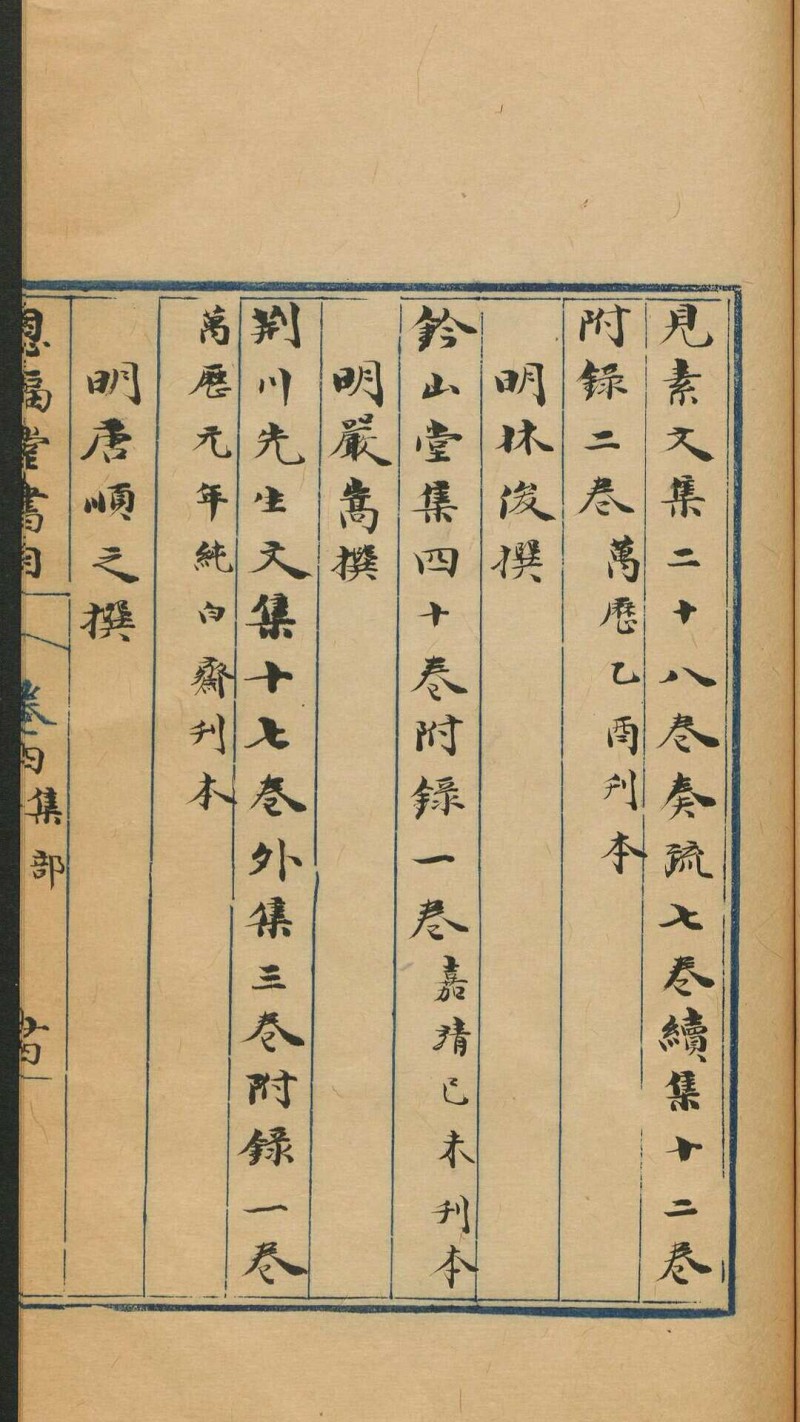 見素文集二十八卷奏疏七卷續集十二卷
附錄二卷萬歷乙酉刋本
明林俊撰
鈐山堂集四十卷附錄一卷嘉靖已未刋本
明嚴嵩撰
荆川先生文集十七卷外集三卷附錄一卷
萬歷元年純白齋刋本
明唐順之撰
恩福堂書目
卷四集部